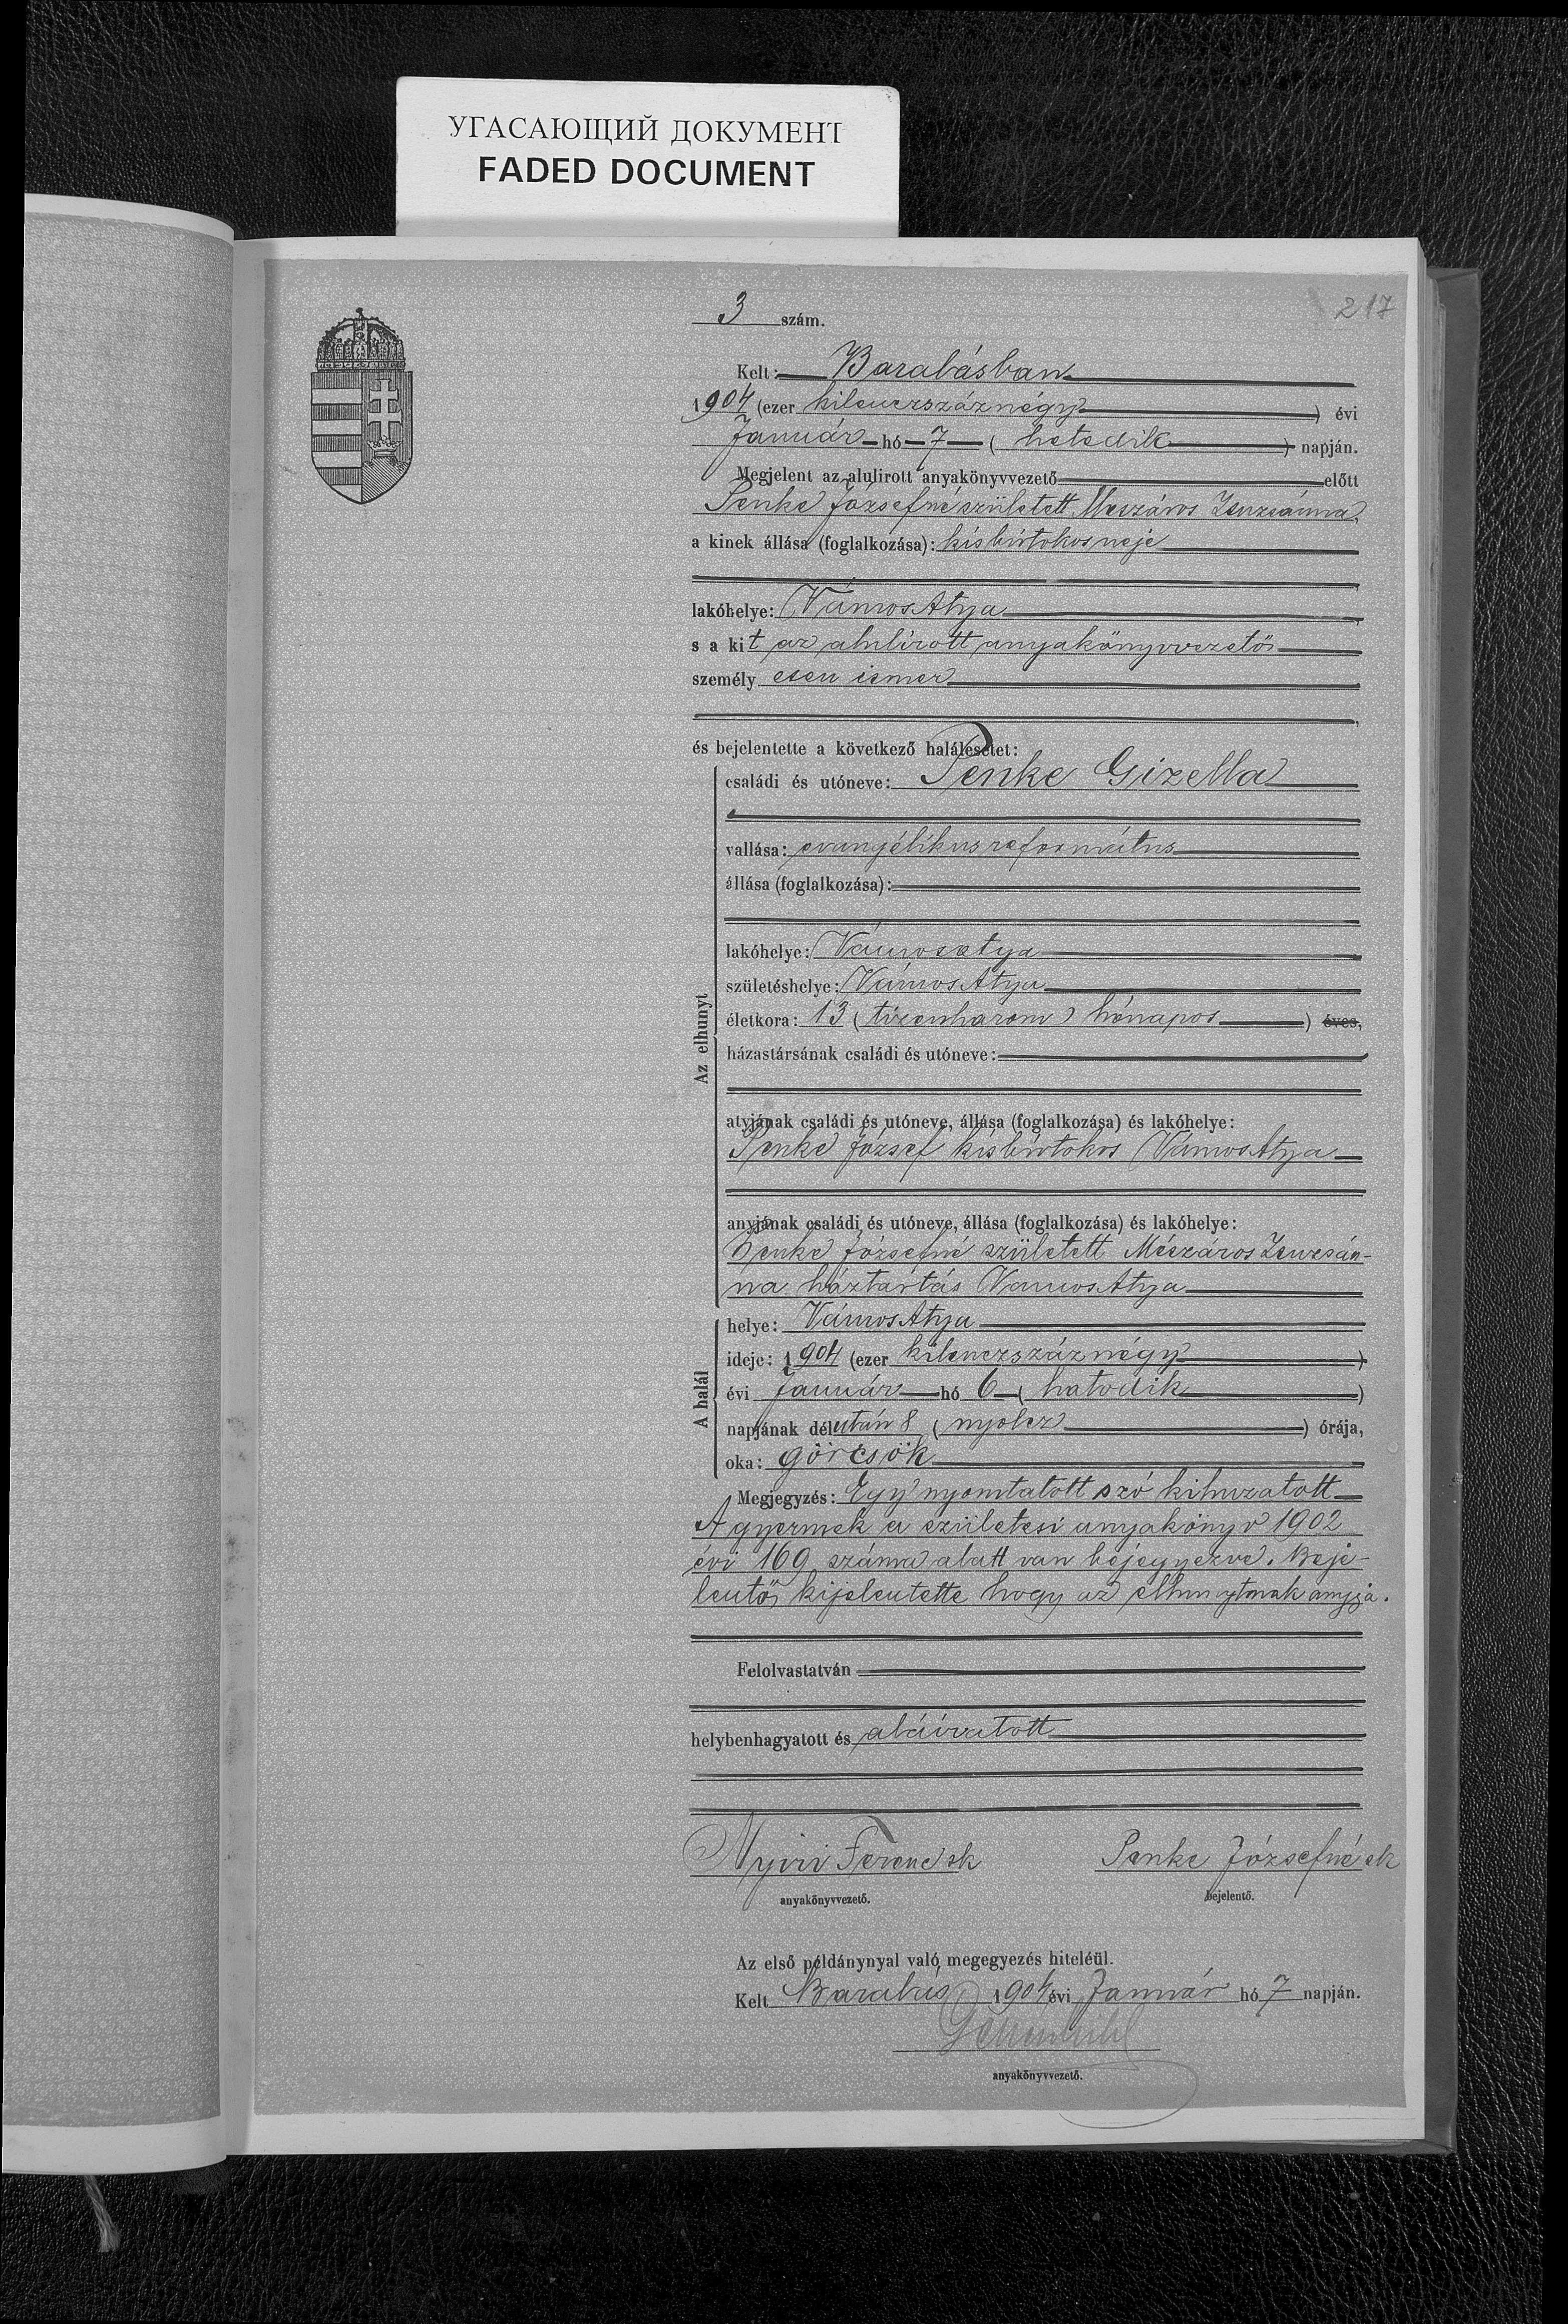 УГАСАЮЩИЙ ДОКУМЕНТ
FADED DOCUMENT
217
3 szám.
Kelt: Barabásban
1904 (ezer kilenczszáznégy) évi
Január hó 7 (hetedik) napján.
Megjelent az alulirott anyakönyvvezető előtt
Penke Józsefné született Meszáros Zsuzsánna,
a kinek állása (foglalkozása): kisbirtokos neje
lakóhelye: Vámos Atya,
s a kit az alulirott anyakönyvvezető
személy esen ismer
és bejelentette a következő halálesetet:
Az elhunyt
családi és utóneve: Penke Gizella
vallása: evangélikus református
állása (foglalkozása):
lakóhelye: Vámosatya
születéshelye: Vámos Atya
életkora: 13 (tizenharom) hónapos ) éves,
házastársának családi és utóneve:
atyjának családi és utóneve, állása (foglalkozása) és lakóhelye:
Penke József kisbirtokos Vámos Atya
anyjának családi és utóneve, állása (foglalkozása) és lakóhelye:
Penke Józsefné született Mészáros Zsuzsán-
na háztartás Vamos Atya
A halál
helye: Vámos Atya
ideje: 1904 (ezer kilenczszáznégy)
évi Január hó 6 (hatodik)
napjának délután 8 (nyolcz) órája,
oka: görcsök
Megjegyzés: Egy nyomtatott szó kihuzatott
A gyermek a születesi anyakönyv 1902
évi 169 száma alatt van bejegyezve. Beje-
lentő kijelentette hogy az elhunytnak anyja.
Felolvastatván
helybenhagyatott és aláiratott
Nyiri Ferencz sk Penke Józsefné sk
anyakönyvvezető. bejelentő.
Az első példánynyal való megegyezés hiteléül.
Kelt Barabás 1904 évi Január hó 7 napján.
anyakönyvvezető.